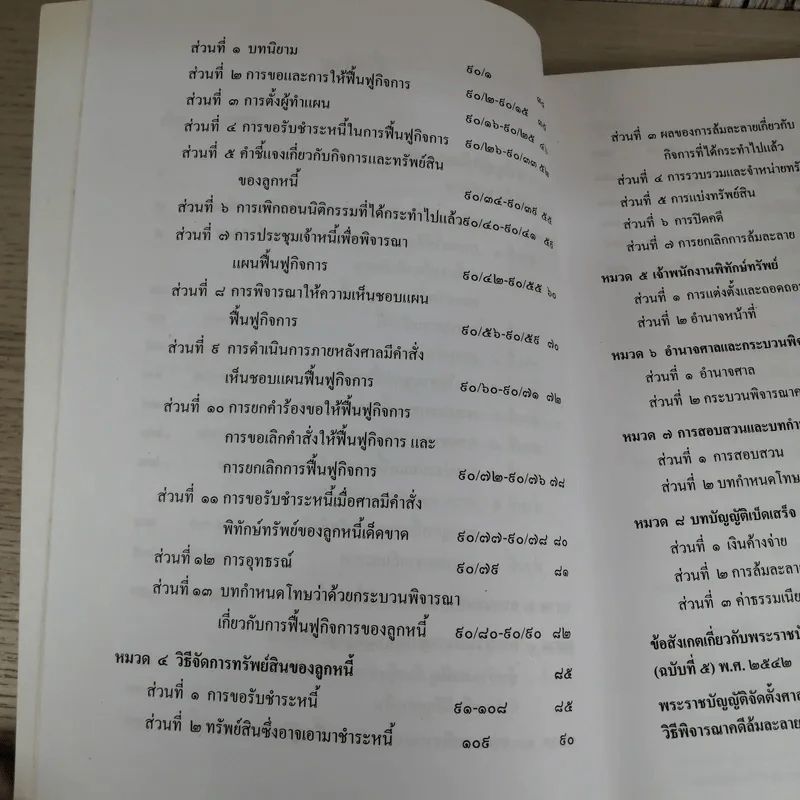 ส่วนที่ ๑ บทนิยาม ๙๐/๑
ส่วนที่ ๒ การขอและการให้ฟื้นฟูกิจการ ๙๐/๒-๙๐/๑๕
ส่วนที่ ๓ การตั้งผู้ทำแผน ๙๐/๑๖-๙๐/๒๕
ส่วนที่ ๔ การขอรับชำระหนี้ในการฟื้นฟูกิจการ ๙๐/๒๖-๙๐/๓๓ ๕๒
ส่วนที่ ๕ คำชี้แจงเกี่ยวกับกิจการและทรัพย์สิน
ของลูกหนี้ ๙๐/๓๔-๙๐/๓๙ ๕๕
ส่วนที่ ๖ การเพิกถอนนิติกรรมที่ได้กระทำไปแล้ว๙๐/๔๐-๙๐/๔๑ ๕๙
ส่วนที่ ๗ การประชุมเจ้าหนี้เพื่อพิจารณา
แผนฟื้นฟูกิจการ ๙๐/๔๒-๙๐/๕๕ ๖๐
ส่วนที่ ๘ การพิจารณาให้ความเห็นชอบแผน
ฟื้นฟูกิจการ ๙๐/๕๖-๙๐/๕๙ ๗๐
ส่วนที่ ๙ การดำเนินการภายหลังศาลมีคำสั่ง
เห็นชอบแผนฟื้นฟูกิจการ ๙๐/๖๐-๙๐/๗๑ ๗๒
ส่วนที่ ๑๐ การยกคำร้องขอให้ฟื้นฟูกิจการ
การขอเลิกคำสั่งให้ฟื้นฟูกิจการ และ
การยกเลิกการฟื้นฟูกิจการ ๙๐/๗๒-๙๐/๗๖ ๗๘
ส่วนที่ ๑๑ การขอรับชำระหนี้เมื่อศาลมีคำสั่ง
พิทักษ์ทรัพย์ของลูกหนี้เด็ดขาด ๙๐/๗๗-๙๐/๗๘ ๘๐
ส่วนที่ ๑๒ การอุทธรณ์ ๙๐/๗๙ ๘๑
ส่วนที่ ๑๓ บทกำหนดโทษว่าด้วยกระบวนพิจารณา
เกี่ยวกับการฟื้นฟูกิจการของลูกหนี้ ๙๐/๘๐-๙๐/๙๐ ๘๒
หมวด ๔ วิธีจัดการทรัพย์สินของลูกหนี้ ๘๕
ส่วนที่ ๑ การขอรับชำระหนี้ ๙๑-๑๐๘ ๘๕
ส่วนที่ ๒ ทรัพย์สินซึ่งอาจเอามาชำระหนี้ ๑๐๙ ๙๐
ส่วนที่ ๓ ผลของการล้มละลายเกี่ยวกับ
กิจการที่ได้กระทำไปแล้ว
ส่วนที่ ๔ การรวบรวมและจำหน่ายทรั
ส่วนที่ ๕ การแบ่งทรัพย์สิน
ส่วนที่ ๖ การปิดคดี
ส่วนที่ ๗ การยกเลิกการล้มละลาย
หมวด ๕ เจ้าพนักงานพิทักษ์ทรัพย์
ส่วนที่ ๑ การแต่งตั้งและถอดถอน
ส่วนที่ ๒ อำนาจหน้าที่
หมวด ๖ อำนาจศาลและกระบวนพิจ
ส่วนที่ ๑ อำนาจศาล
ส่วนที่ ๒ กระบวนพิจารณาค
หมวด ๗ การสอบสวนและบทกำ
ส่วนที่ ๑ การสอบสวน
ส่วนที่ ๒ บทกำหนดโทษ
หมวด ๘ บทบัญญัติเบ็ดเสร็จ
ส่วนที่ ๑ เงินค้างจ่าย
ส่วนที่ ๒ การล้มละลา
ส่วนที่ ๓ ค่าธรรมเนีย
ข้อสังเกตเกี่ยวกับพระราชบั
(ฉบับที่ ๕) พ.ศ. ๒๕๔๒
พระราชบัญญัติจัดตั้งศาล
วิธีพิจารณาคดีล้มละลาย